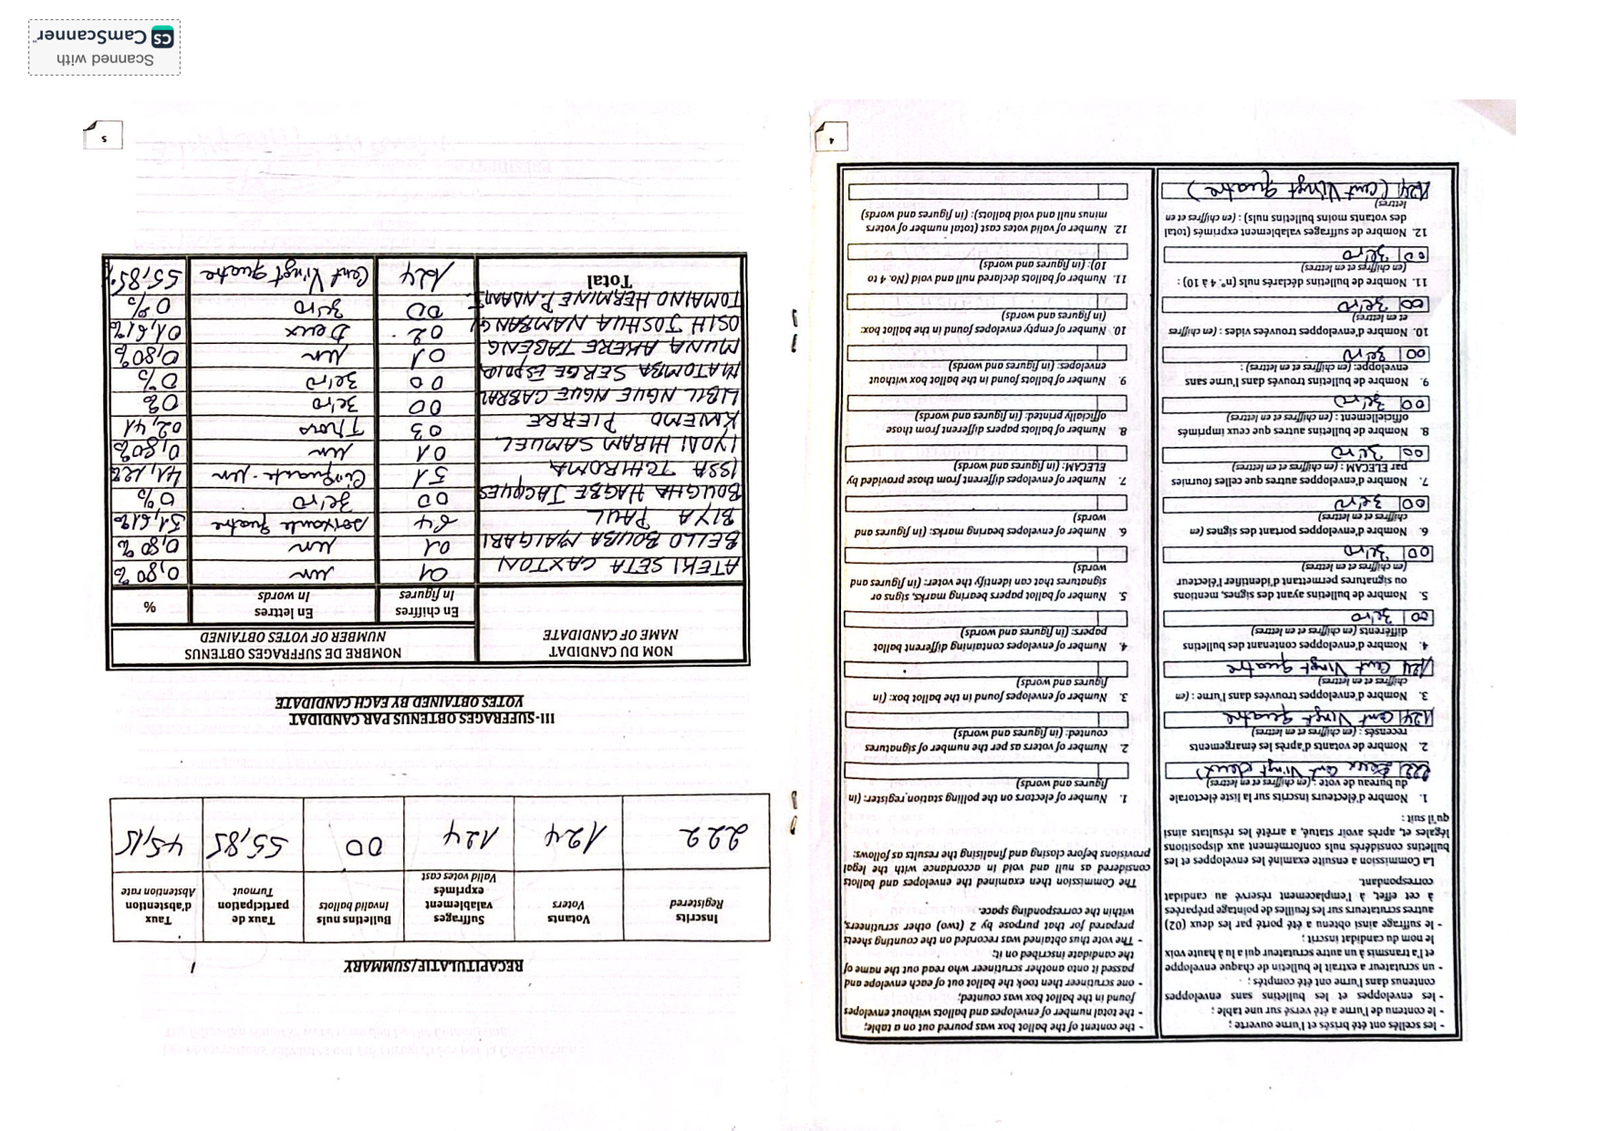 - les scellés ont été brisés et l'urne ouverte ;
- le contenu de l'urne a été versé sur une table ;
- les enveloppes et les bulletins sans enveloppes
contenus dans l'urne ont été comptés ;
- un scrutateur a extrait le bulletin de chaque enveloppe
et l'a transmis à un autre scrutateur qui a lu à haute voix
le nom du candidat inscrit ;
- le suffrage ainsi obtenu a été porté par les deux (02)
autres scrutateurs sur les feuilles de pointage préparées
à cet effet, à l'emplacement réservé au candidat
correspondant.
La Commission a ensuite examiné les enveloppes et les
bulletins considérés nuls conformément aux dispositions
légales et, après avoir statué, a arrêté les résultats ainsi
qu'il suit :
1. Nombre d'électeurs inscrits sur la liste électorale
du bureau de vote : (en chiffres et en lettres)
222 Deux Cent Vingt deux)
2. Nombre de votants d'après les émargements
recensés : (en chiffres et en lettres)
124 Cent Vingt Quatre
3. Nombre d'enveloppes trouvées dans l'urne : (en
chiffres et en lettres)
124 Cent Vingt Quatre
4. Nombre d'enveloppes contenant des bulletins
différents (en chiffres et en lettres)
00 zéro
5. Nombre de bulletins ayant des signes, mentions
ou signatures permettant d'identifier l'électeur
(en chiffres et en lettres)
00 zéro
6. Nombre d'enveloppes portant des signes (en
chiffres et en lettres)
00 zéro
7. Nombre d'enveloppes autres que celles fournies
par ELECAM : (en chiffres et en lettres)
00 zéro
8. Nombre de bulletins autres que ceux imprimés
officiellement : (en chiffres et en lettres)
00 zéro
9. Nombre de bulletins trouvés dans l'urne sans
enveloppe: (en chiffres et en lettres) :
00 zéro
10. Nombre d'enveloppes trouvées vides : (en chiffres
et en lettres)
00 zéro
11. Nombre de bulletins déclarés nuls (n°. 4 à 10) :
(en chiffres et en lettres)
00 zéro
12. Nombre de suffrages valablement exprimés (total
des votants moins bulletins nuls) : (en chiffres et en
lettres)
124 (Cent Vingt Quatre)
- the content of the ballot box was poured out on a table;
- the total number of envelopes and ballots without envelopes
found in the ballot box was counted;
- one scrutineer then took the ballot out of each envelope and
passed it onto another scrutineer who read out the name of
the candidate inscribed on it;
- The vote thus obtained was recorded on the counting sheets
prepared for that purpose by 2 (two) other scrutineers,
within the corresponding space.
The Commission then examined the envelopes and ballots
considered as null and void in accordance with the legal
provisions before closing and finalising the results as follows:
1. Number of electors on the polling station register: (in
figures and words)
2. Number of voters as per the number of signatures
counted: (in figures and words)
3. Number of envelopes found in the ballot box: (in
figures and words)
4. Number of envelopes containing different ballot
papers: (in figures and words)
5. Number of ballot papers bearing marks, signs or
signatures that can identify the voter: (in figures and
words)
6. Number of envelopes bearing marks: (in figures and
words)
7. Number of envelopes different from those provided by
ELECAM: (in figures and words)
8. Number of ballots papers different from those
officially printed: (in figures and words)
9. Number of ballots found in the ballot box without
envelopes: (in figures and words)
10. Number of empty envelopes found in the ballot box:
(in figures and words)
11. Number of ballots declared null and void (No. 4 to
10): (in figures and words)
12. Number of valid votes cast (total number of voters
minus null and void ballots): (in figures and words)
4
RECAPITULATIF/SUMMARY
Inscrits Registered | Votants Voters | Suffrages valablement exprimés Valid votes cast | Bulletins nuls Invalid ballots | Taux de participation Turnout | Taux d'abstention Abstention rate
222 | 124 | 124 | 00 | 55,85 | 45,15
III- SUFFRAGES OBTENUS PAR CANDIDAT
VOTES OBTAINED BY EACH CANDIDATE
NOM DU CANDIDAT NAME OF CANDIDATE | NOMBRE DE SUFFRAGES OBTENUS NUMBER OF VOTES OBTAINED
En chiffres In figures | En lettres In words | %
ATEKI SETA CAXTON | 01 | un | 0,80%
BELLO BOUBA MAIGARI | 01 | un | 0,80%
BIYA PAUL | 64 | soixante Quatre | 51,61%
BOUGHA HAGBE JACQUES | 00 | zéro | 0%
ISSA TCHIROMA | 51 | Cinquante-un | 41,12%
IYODI HIRAM SAMUEL | 01 | un | 0,80%
KWEMO PIERRE | 03 | Trois | 02,41
LIBII NGUE NGUE CABRAL | 00 | zéro | 0%
MATOMBA SERGE ESPOIR | 00 | zéro | 0%
MUNA AKERE TABENG | 01 | un | 0,80%
OSIH JOSHUA NAMBANGI | 02 | Deux | 01,61%
TOMAINO HERMINE P. NDAM | 00 | zéro | 0%
Total | 124 | Cent Vingt Quatre | 55,85%
5
Scanned with
CS CamScanner